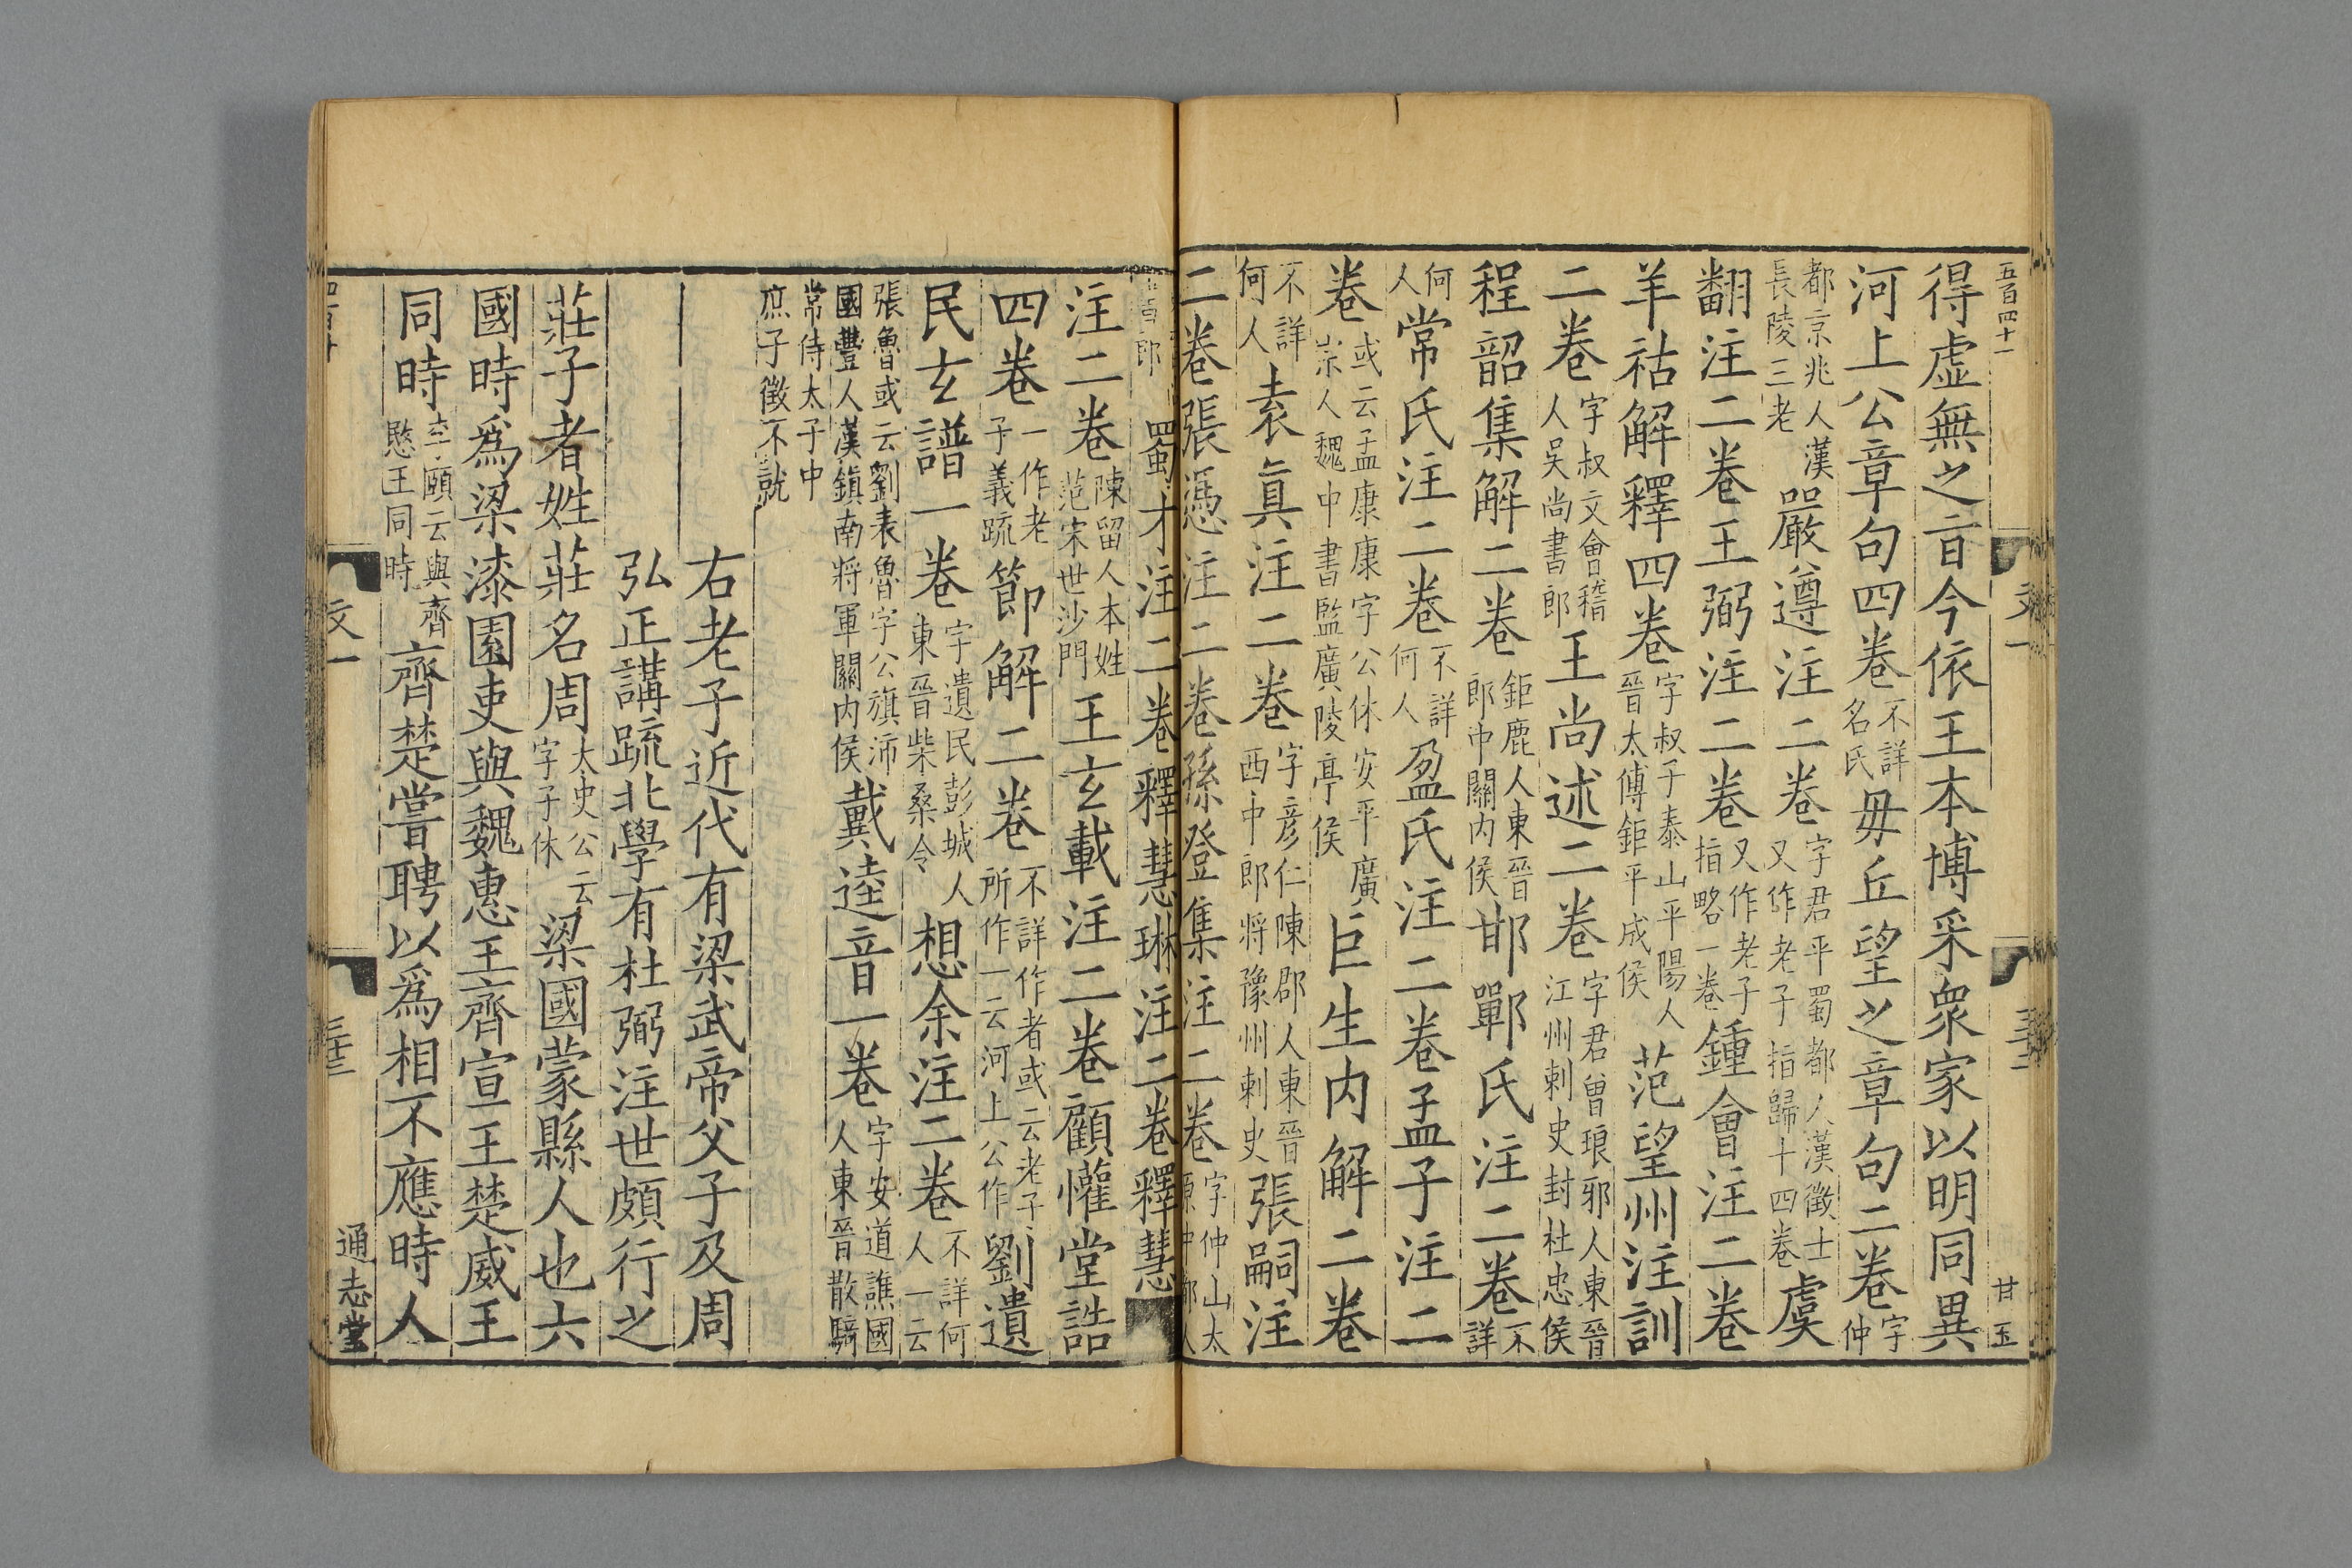 五百四十一
文一
三十二
甘玉
得虛無之旨今依王本博采衆家以明同異
河上公章句四卷不詳名氏毋丘望之章句二卷字仲
都京兆人漢長陵三老嚴遵注二卷字君平蜀都人漢徵士又作老子指歸十四卷虞
翻注二卷王弼注二卷又作老子指略一卷鍾會注二卷
羊祜解釋四卷字叔子泰山平陽人晉太傅鉅平成侯范望州注訓
二卷字叔文會稽人吳尚書郎王尚述二卷字君曾琅邪人東晉江州刺史封杜忠侯
程韶集解二卷鉅鹿人東晉郎中關內侯邯鄲氏注二卷不詳
何人常氏注二卷不詳何人盈氏注二卷孟子注二
卷或云孟康康字公休安平廣宗人魏中書監廣陵亭侯巨生內解二卷
不詳何人袁眞注二卷字彦仁陳郡人東晉西中郎將豫州刺史張嗣注
二卷張憑注二卷孫登集注二卷字仲山太原中都人
郎蜀才注二卷釋慧琳注二卷釋慧
注二卷陳留人本姓范宋世沙門王玄載注二卷顧懽堂誥
四卷一作老子義䟽節解二卷不詳作者或云老子所作一云河上公作劉遺
民玄譜一卷字遺民彭城人東晉柴桑令想余注二卷不詳何人一云
張魯或云劉表魯字公旗沛國豐人漢鎮南將軍關內侯戴逵音一卷字安道譙國人東晉散騎
常侍太子中庶子徵不就
右老子近代有梁武帝父子及周
弘正講䟽北學有杜弼注世頗行之
莊子者姓莊名周太史公云字子休梁國蒙縣人也六
國時爲梁漆園吏與魏惠王齊宣王楚威王
同時李頤云與齊愍王同時齊楚嘗聘以爲相不應時人
文一
三十三
通志堂